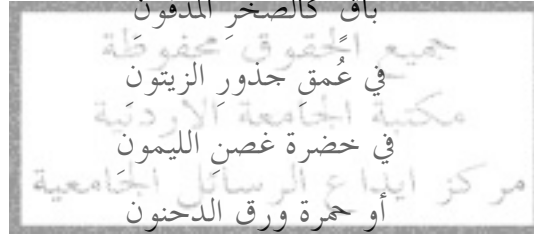 باقٍ كالصخرِ المدفونَ
جميع الحقوق محفوظة
في عُمقِ جذورِ الزيتونَ
مكتبة الجامعة الاردنية
في خضرة غصنِ الليمونَ
مركز ايداع الرسائل الجامعية
أو حمرة ورق الدحنون